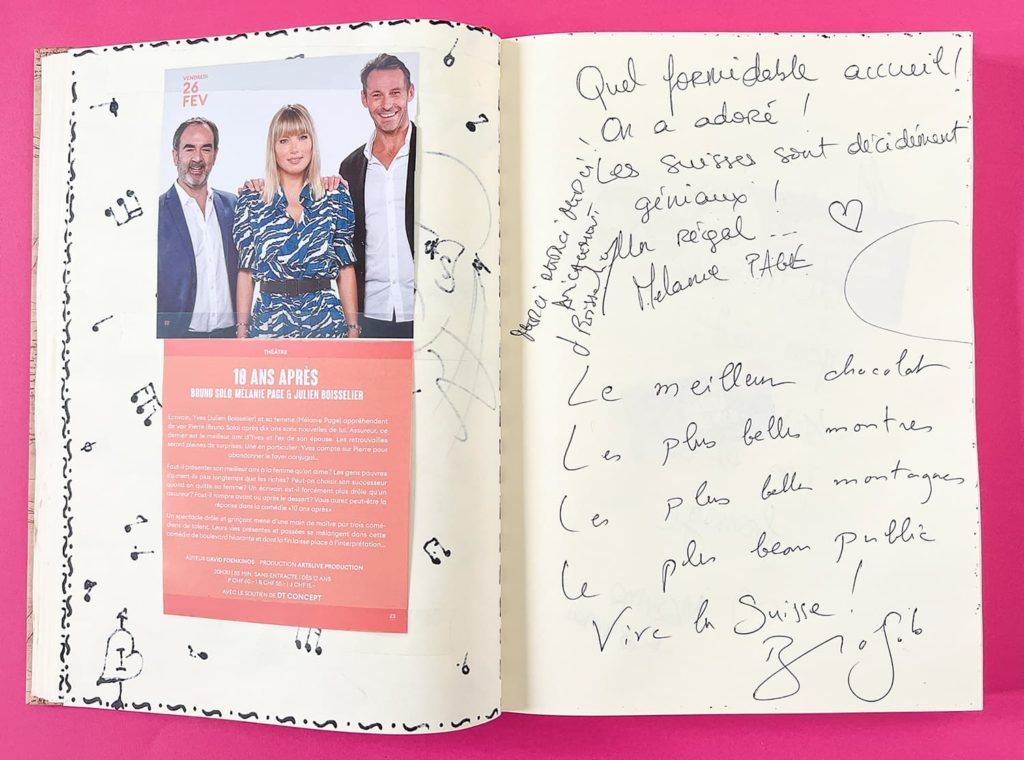 VENDREDI
26
FEV
THÉÂTRE
10 ANS APRÈS
BRUNO SOLO, MÉLANIE PAGE & JULIEN BOISSELIER
Écrivain, Yves (Julien Boisselier) et sa femme (Mélanie Page) appréhendent
de voir Pierre (Bruno Solo) après dix ans sans nouvelles de lui. Assureur, ce
dernier est le meilleur ami d'Yves et l'ex de son épouse. Les retrouvailles
seront pleines de surprises. Une en particulier: Yves compte sur Pierre pour
abandonner le foyer conjugal...
Faut-il présenter son meilleur ami à la femme qu'on aime? Les gens pauvres
s'aiment-ils plus longtemps que les riches? Peut-on choisir son successeur
quand on quitte sa femme? Un écrivain est-il forcément plus drôle qu'un
assureur? Faut-il rompre avant ou après le dessert? Vous aurez peut-être la
réponse dans la comédie «10 ans après»
Un spectacle drôle et grinçant mené d'une main de maître par trois comé-
diens de talent. Leurs vies présentes et passées se mélangent dans cette
comédie de boulevard hilarante et dont la fin laisse place à l'interprétation...
AUTEUR DAVID FOENKINOS PRODUCTION ARTSLIVE PRODUCTION
20H30 | 85 MIN. SANS ENTRACTE | DÈS 12 ANS
P CHF 60.- | B CHF 55.- | J CHF 15.-
AVEC LE SOUTIEN DE DT CONCEPT
23
Quel formidable accueil!
On a adoré!
Les Suisses sont décidément
géniaux!
Un régal...
Mélanie PAGE
merci merci merci merci!
Le meilleur chocolat
Les plus belles montres
Les plus belles montagnes
Le plus beau public
Vive la Suisse!